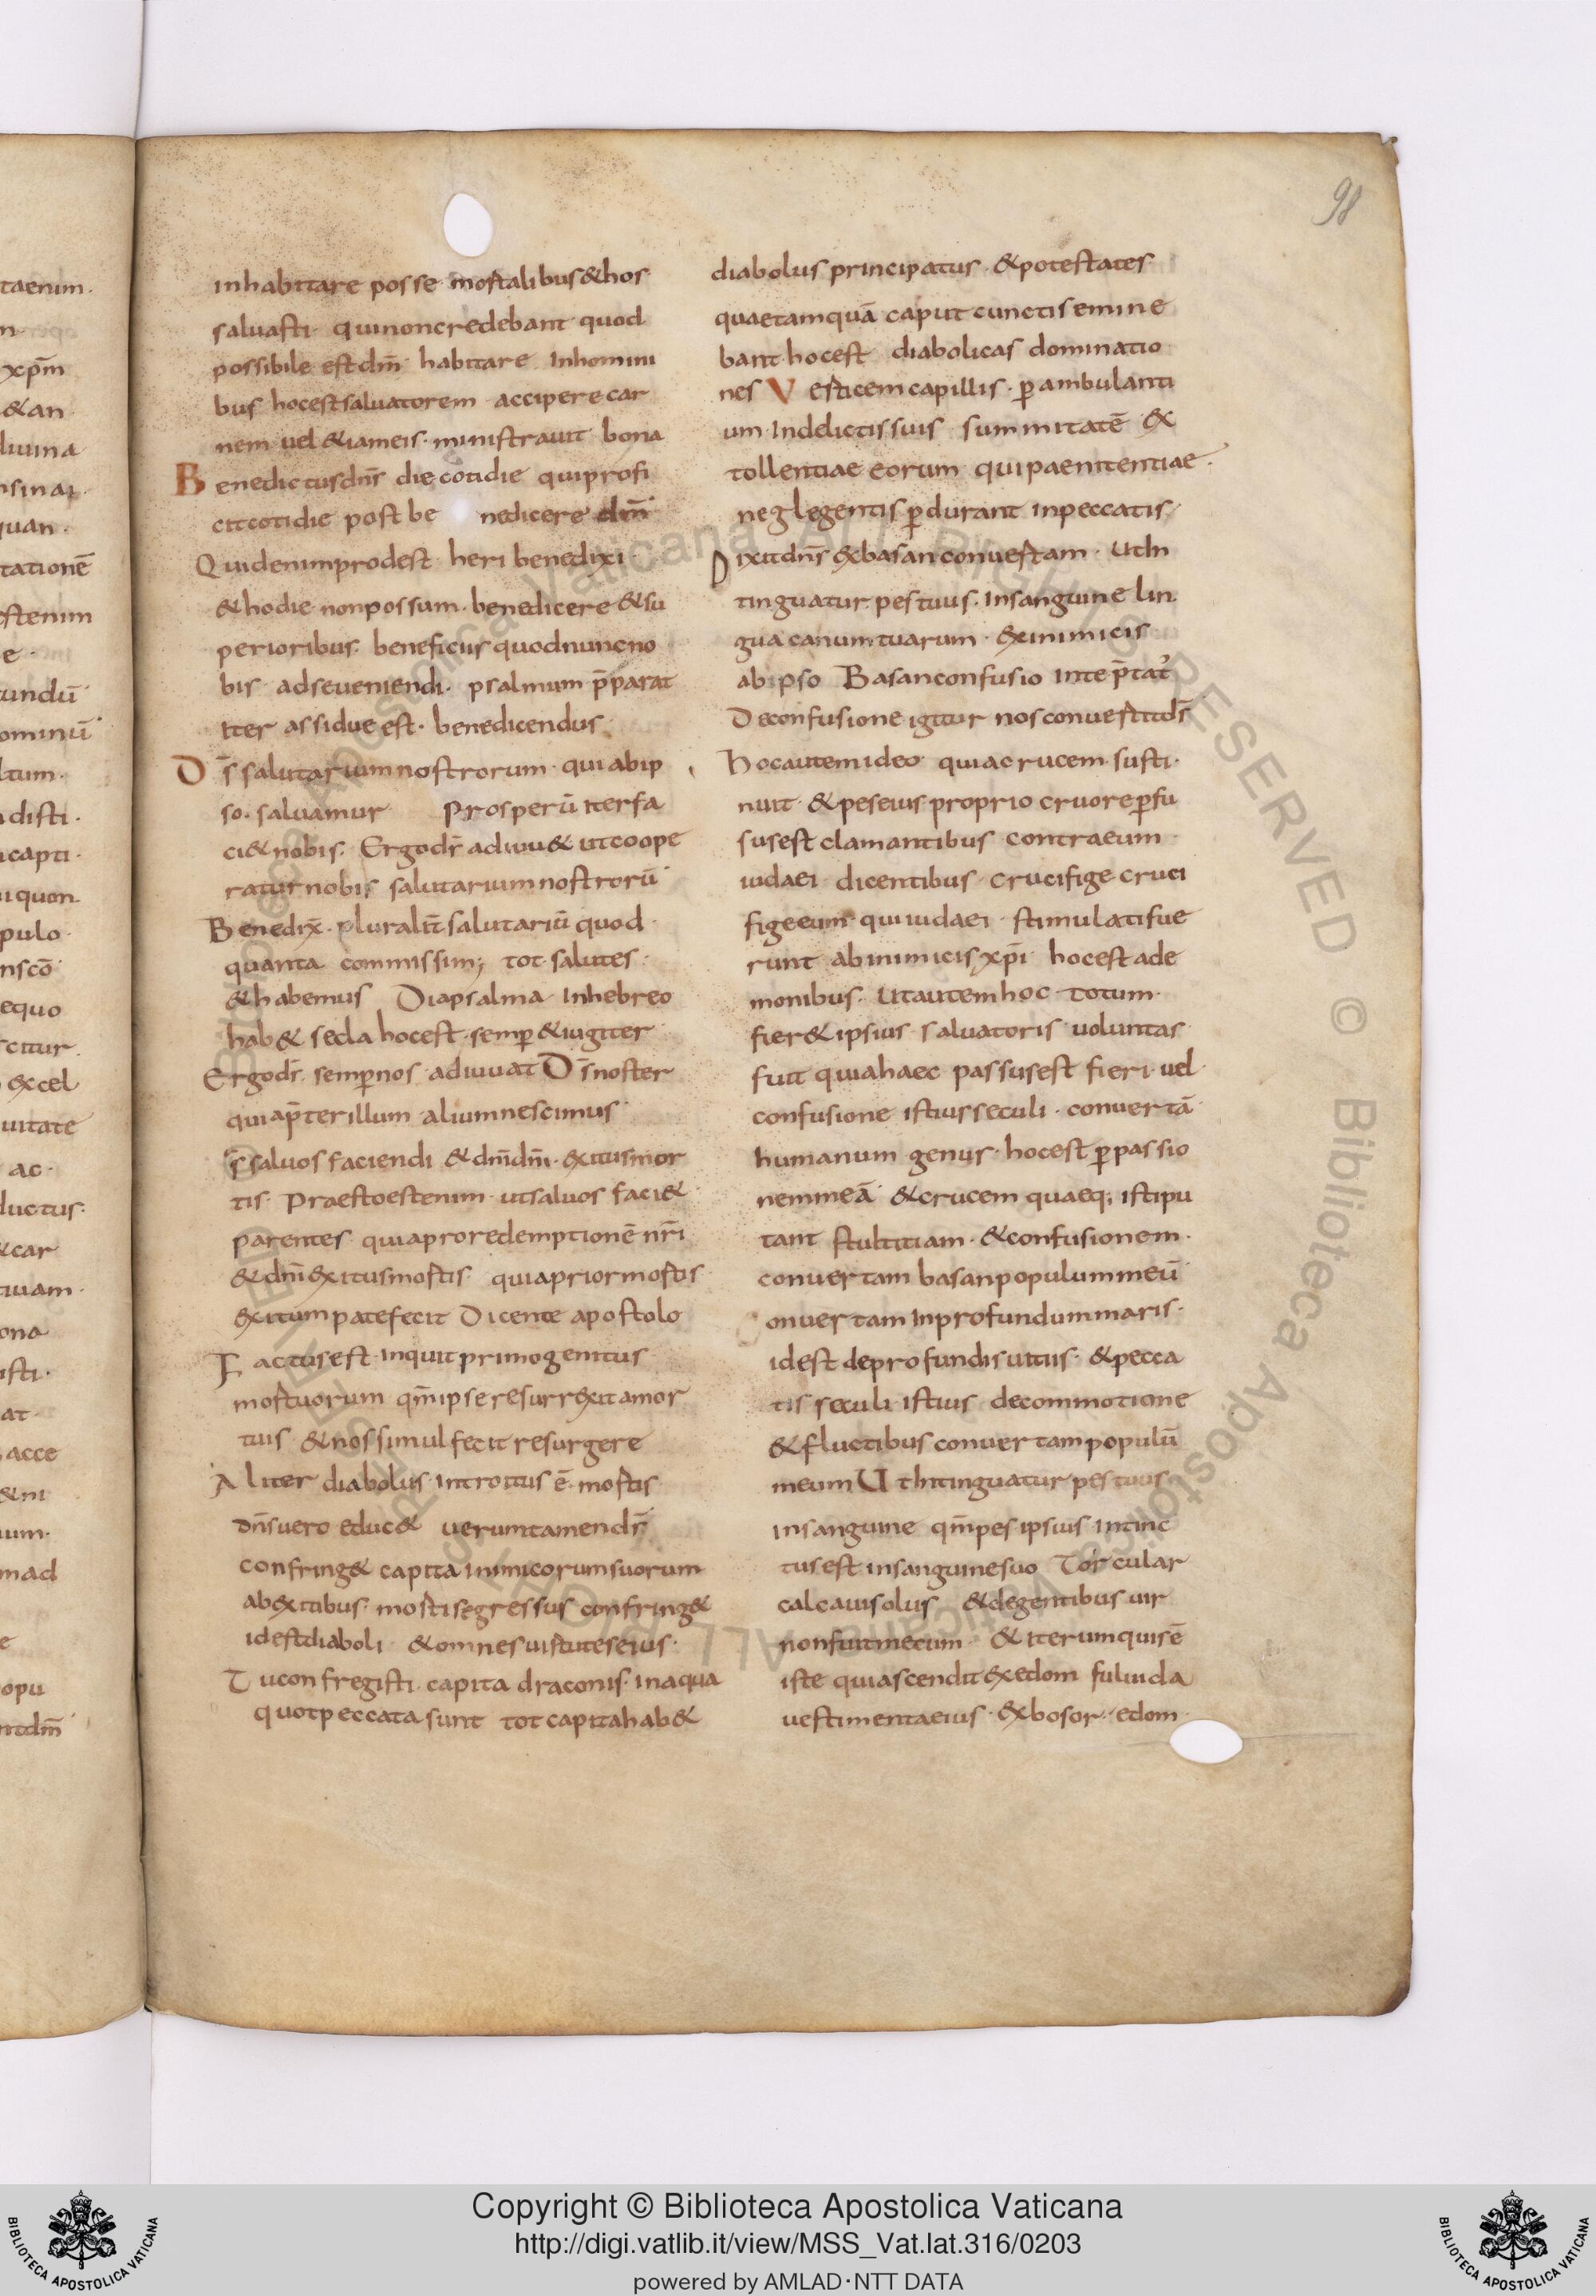 98
inhabitare posse mortalibus &hos
saluasti· quinoncredebant quod
possibile estdm̄ habitare Inhomini
bus hocestsaluatorem accipere car
nem uel &iameis· ministrauit bona
Benedictusdn̄s die cotidie quiprofi
citcotidie post be nedicere dm̄
Quidenimprodest heri benedixi·
&hodie nonpossum· benedicere &su
perioribus· beneficiis quodnuncno
bis adseueniendi· psalmum p̄parat
Iter assidue est· benedicendus
Ds̄ salutariumnostrorum· qui abip
so· saluamur prosperū Iterfa
ci&nobis· Ergods̄ adiuu& utcoope
raturnobis salutariumnostrorū
Benedix̄· pluralit̄ salutariū quod·
quanta commissim; tot salutes·
&habemus Diapsalma Inhebreo
hab& secla hocest· semp̄ &iugiter
Ergods̄· semp̄nos adiuuat Ds̄noster
quiap̄terillum aliumnescimus
s̄saluosfaciendi &dn̄idn̄i· exitusmor
tis· praestoestenim· utsaluos faci&
parentes quiaproredemptionē nr̄i
&dn̄iexitusmortis quiapriormortis
exitumpatefecit Dicente apostolo
Factusest· Inquitprimogenitus
mortuorum qm̄ipseresurrexitamor
tuis &nossimulfecitresurgere
Aliter diabolus Introitus ē mortis
dn̄suero educ& uerumtamends̄
confring& capita inimicorumsuorum
abexitibus· mortisegressus confring&
idestdiaboli &omnesuirtuteseius·
Tuconfregisti· capita draconis· inaqua
quotpeccatasunt totcapitahab&
diabolus principatus· &potestates
quaetamquā caput cunctisemine
bant hocest diabolicas dominatio
nes Verticemcapillis· p̄ambulanti
um· Indelictissuis summitatē ex
tollentiae eorum quipaenitentiae·
neglegentis p̄durant inpeccatis·
Dixitdn̄s exbasanconuertam· utIn
tinguatur pestuus· Insanguine lin
gua canumtuarum· exinimicis
abipso Basanconfusio inte p̄tat̄
Deconfusione igitur nosconuertitds̄
hocautemideo quiacrucem susti·
nuit· &peseius proprio cruorep̄fu
susest clamantibus contraeum·
iudaei dicentibus crucifige cruci
figeeum· quiiudaei· stimulatifue
runt abinimicis xp̄i hocest ade
monibus· utautemhoc totum·
fier& ipsius saluatoris uoluntas
fuit quiahaec passusest fieri uel·
confusione istiusseculi· conuertā
humanum genus· hocest p̄passio
nemmeā &crucem quaeq; istipu
tant stultitiam· &confusionem·
conuertam basanpopulummeū
onuertam Inprofundummaris·
idest deprofundisuitiis· &pecca
tis seculi istius decommotione
&fluctibus conuertampopulū
meum UtIntinguatur pestuus
insanguine qm̄pes ipsius intinc
tusest insanguinesuo Torcular
calcauisolus &degentibus uir
nonfuitmecum &iterumquisē
iste quiascendit exedom fuluida
uestimentaeius· exbosor· edom·
Copyright © Biblioteca Apostolica Vaticana
http://digi.vatlib.it/view/MSS_Vat.lat.316/0203
powered by AMLAD·NTT DATA